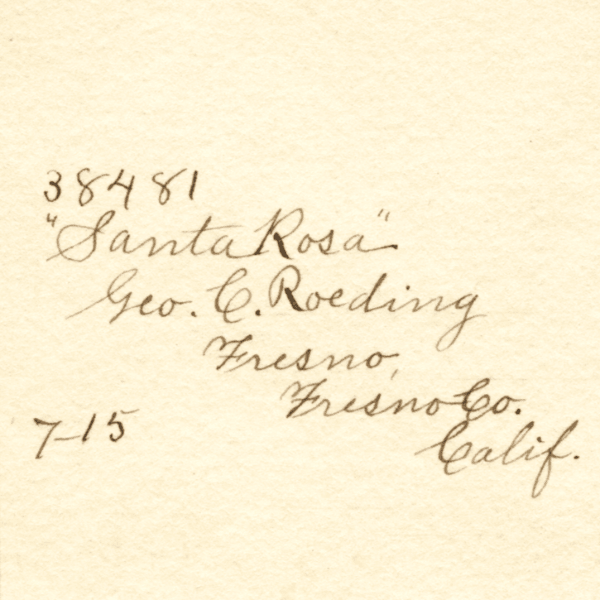 38481
"Santa Rosa"
Geo. C. Roeding
Fresno,
Fresno Co.
7-15
Calif.